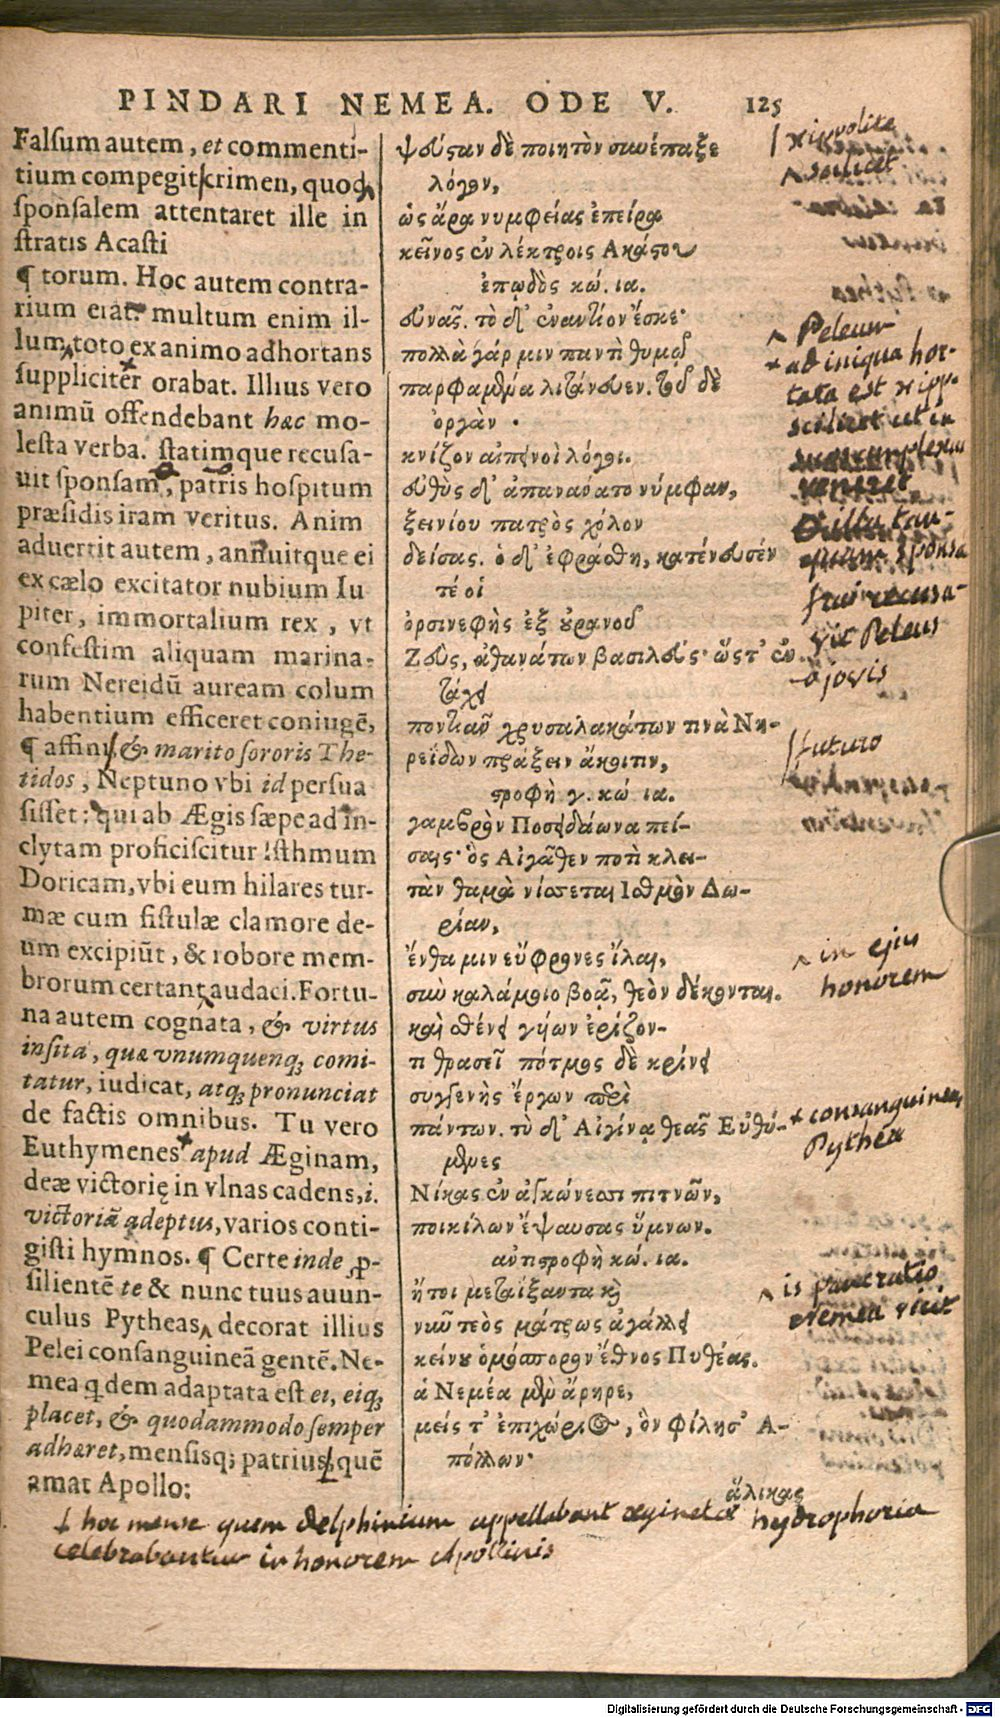 PINDARI NEMEA. ODE V. 125
Falsum autem, et commenti-
tium compegit crimen, quod
sponsalem attentaret ille in
stratis Acasti
¶ torum. Hoc autem contra-
rium erat. multum enim il-
lum toto ex animo adhortans
suppliciter orabat. Illius vero
animū offendebant hæc mo-
lesta verba. statimque recusa-
uit sponsam, patris hospitum
præsidis iram veritus. Anim
aduertit autem, annuitque ei
ex cælo excitator nubium Iu
piter, immortalium rex, vt
confestim aliquam marina-
rum Nereidū auream colum
habentium efficeret coniugē,
¶ affini, & marito sororis The-
tidos, Neptuno vbi id persua
sisset: qui ab Ægis sæpe ad in-
clytam proficiscitur Isthmum
Doricam, vbi eum hilares tur-
mæ cum fistulæ clamore de-
um excipiūt, & robore mem-
brorum certant audaci. Fortu-
na autem cognata, & virtus
insita, quæ vnumquenq; comi-
tatur, iudicat, atq; pronunciat
de factis omnibus. Tu vero
Euthymenes apud Æginam,
deæ victorię in vlnas cadens, i.
victoriā adeptus, varios conti-
gisti hymnos. ¶ Certe inde ꝓ-
silientē te & nunc tuus auun-
culus Pytheas decorat illius
Pelei consanguineā gentē. Ne-
mea qdem adaptata est ei, eiq;
placet, & quodammodo semper
adhæret, mensisq; patrius, quē
amat Apollo:
ψεύσαν δὲ ποιητὸν συνέπαξε
λόγον,
ὡς ἄρα νυμφείας ἐπείρα
κεῖνος ἐν λέκτροις Ακάστου
ἐπῳδὸς κώ. ια.
εὐνᾶς. τὸ δ' ἐναντίον ἔσκε·
πολλὰ γάρ μιν παντὶ θυμῷ
παρφαμένα λιτάνευεν. τοῦ δὲ
ὀργὰν .
κνίζον αἰπεινοὶ λόγοι.
εὐθὺς δ' ἀπανάνατο νύμφαν,
ξεινίου πατρὸς χόλον
δείσας. ὁ δ' ἐφράσθη, κατένευσέν
τέ οἱ
ὀρσινεφὴς ἐξ οὐρανοῦ
Ζεὺς, ἀθανάτων βασιλεύς· ὥστ' ἐν
τάχει
ποντιᾶν χρυσαλακάτων τινὰ Νη-
ρεΐδων πράξειν ἄκοιτιν,
στροφὴ γ. κώ ια.
γαμβρὸν Ποσειδάωνα πεί-
σαις· ὃς Αἰγᾶθεν ποτὶ κλει-
τὰν θαμὰ νίσσεται Ισθμὸν Δω-
ρίαν,
ἔνθα μιν εὔφρονες ἶλαι,
σὺν καλάμοιο βοᾷ, θεὸν δέκονται.
καὶ σθένει γυίων ἐρίζον-
τι θρασεῖ πότμος δὲ κρίνει
συγγενὴς ἔργων περὶ
πάντων. τὺ δ' Αἰγίνᾳ θεᾶς Εὐθύ-
μενες
Νίκας ἐν ἀγκώνεσσι πιτνῶν,
ποικίλων ἔψαυσας ὕμνων.
ἀντιστροφὴ κώ. ια.
ἤτοι μεταΐξαντα καὶ
νῦν τεὸς μάτρως ἀγάλλει
κείνου ὁμόσπορον ἔθνος Πυθέας.
ἁ Νεμέα μὲν ἄρηρε,
μείς τ' ἐπιχώριος, ὃν φίλησ' Α-
πόλλων·
hippolite
scilicet
Peleum
ad iniqua hor-
tata est hipp.
scilicet ut in
veniret
tan-
quam sponsa
recusa-
vit Peleus
jovis
futuro
in ejus
honorem
consanguineus
Pythea
is pancratio
nemea vicit
ἅλικας
hoc mense quem delphinium appellabant æginetæ hydrophoria
celebrabantur in honorem Apollinis
Digitalisierung gefördert durch die Deutsche Forschungsgemeinschaft - DFG